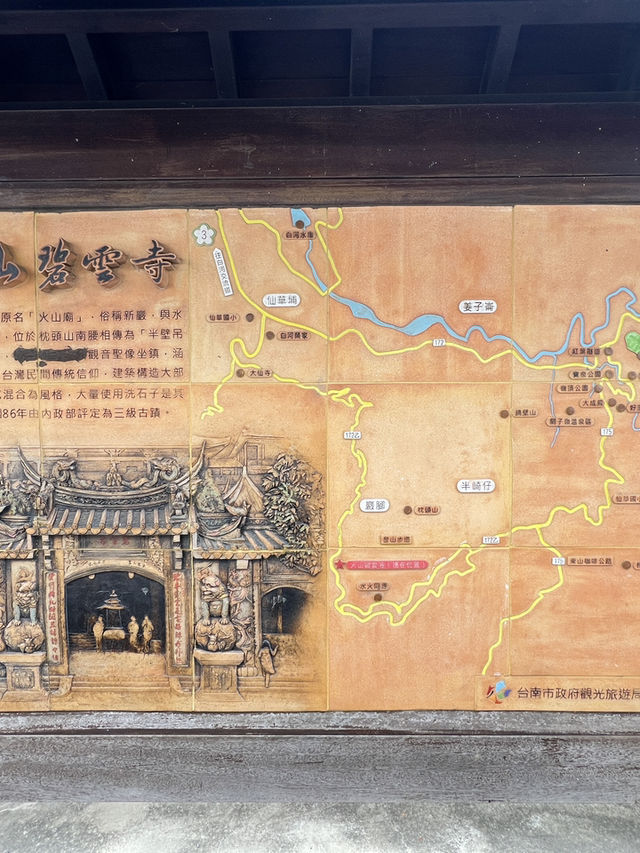 山碧雲寺
原名「火山廟」，俗稱新巖，與水
，位於枕頭山南腰相傳為「半壁吊
觀音聖像坐鎮，涵
台灣民間傳統信仰，建築構造大部
混合為風格，大量使用洗石子是其
86年由內政部評定為三級古蹟。
3
往白河交流道
白河水庫
仙草埔
姜子崙
仙草國小
白河榮家
172
大仙寺
紅葉隧道
寶泉公園
嶺頂公園
大成殿
好
關子嶺溫泉區
摘壁山
175
172乙
巖腳
枕頭山
半崎仔
仙草國小
登山步道
172乙
大山碧雲寺(現在位置)
水火同源
175
東山咖啡公路
台南市政府觀光旅遊局